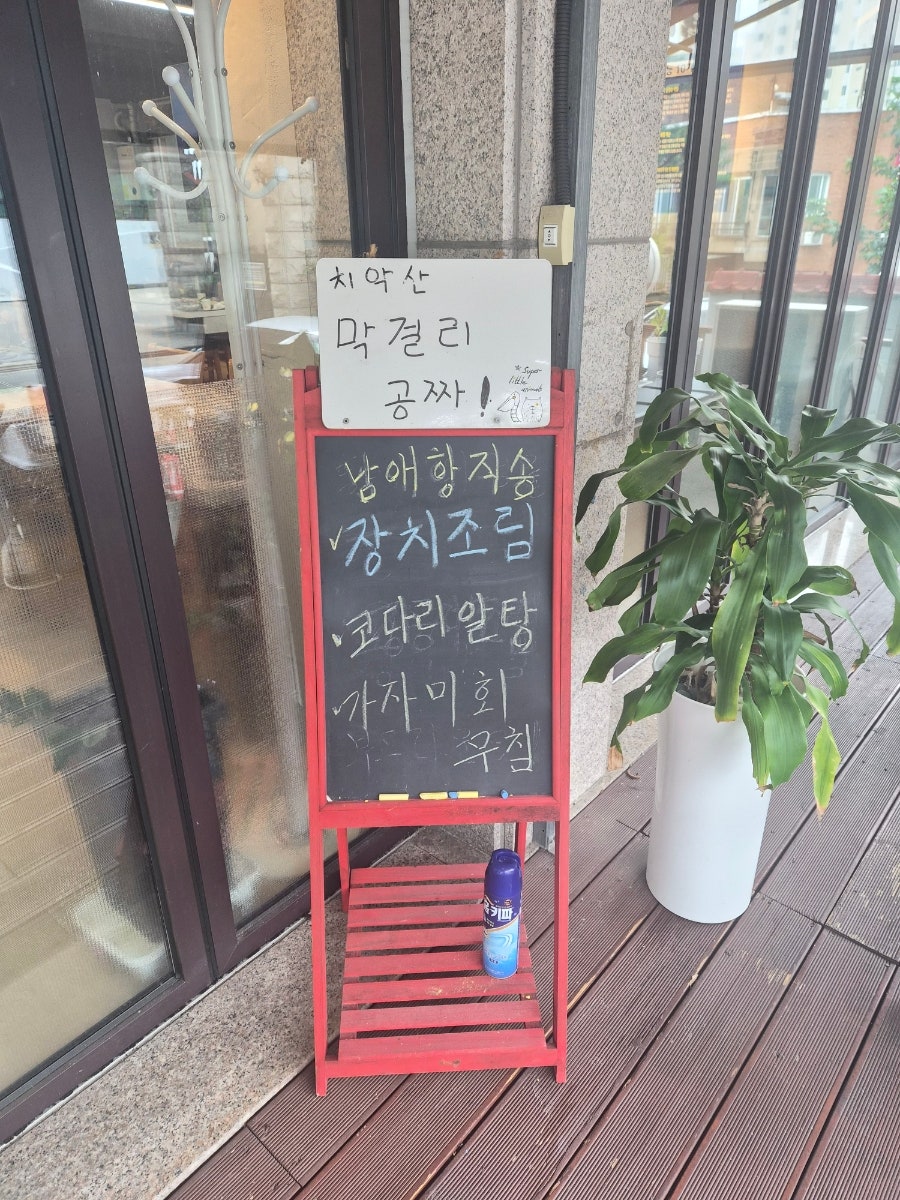 치악산
막걸리
공짜!
*super
little
animals
남애항직송
장치조림
코다리알탕
가자미회
무침